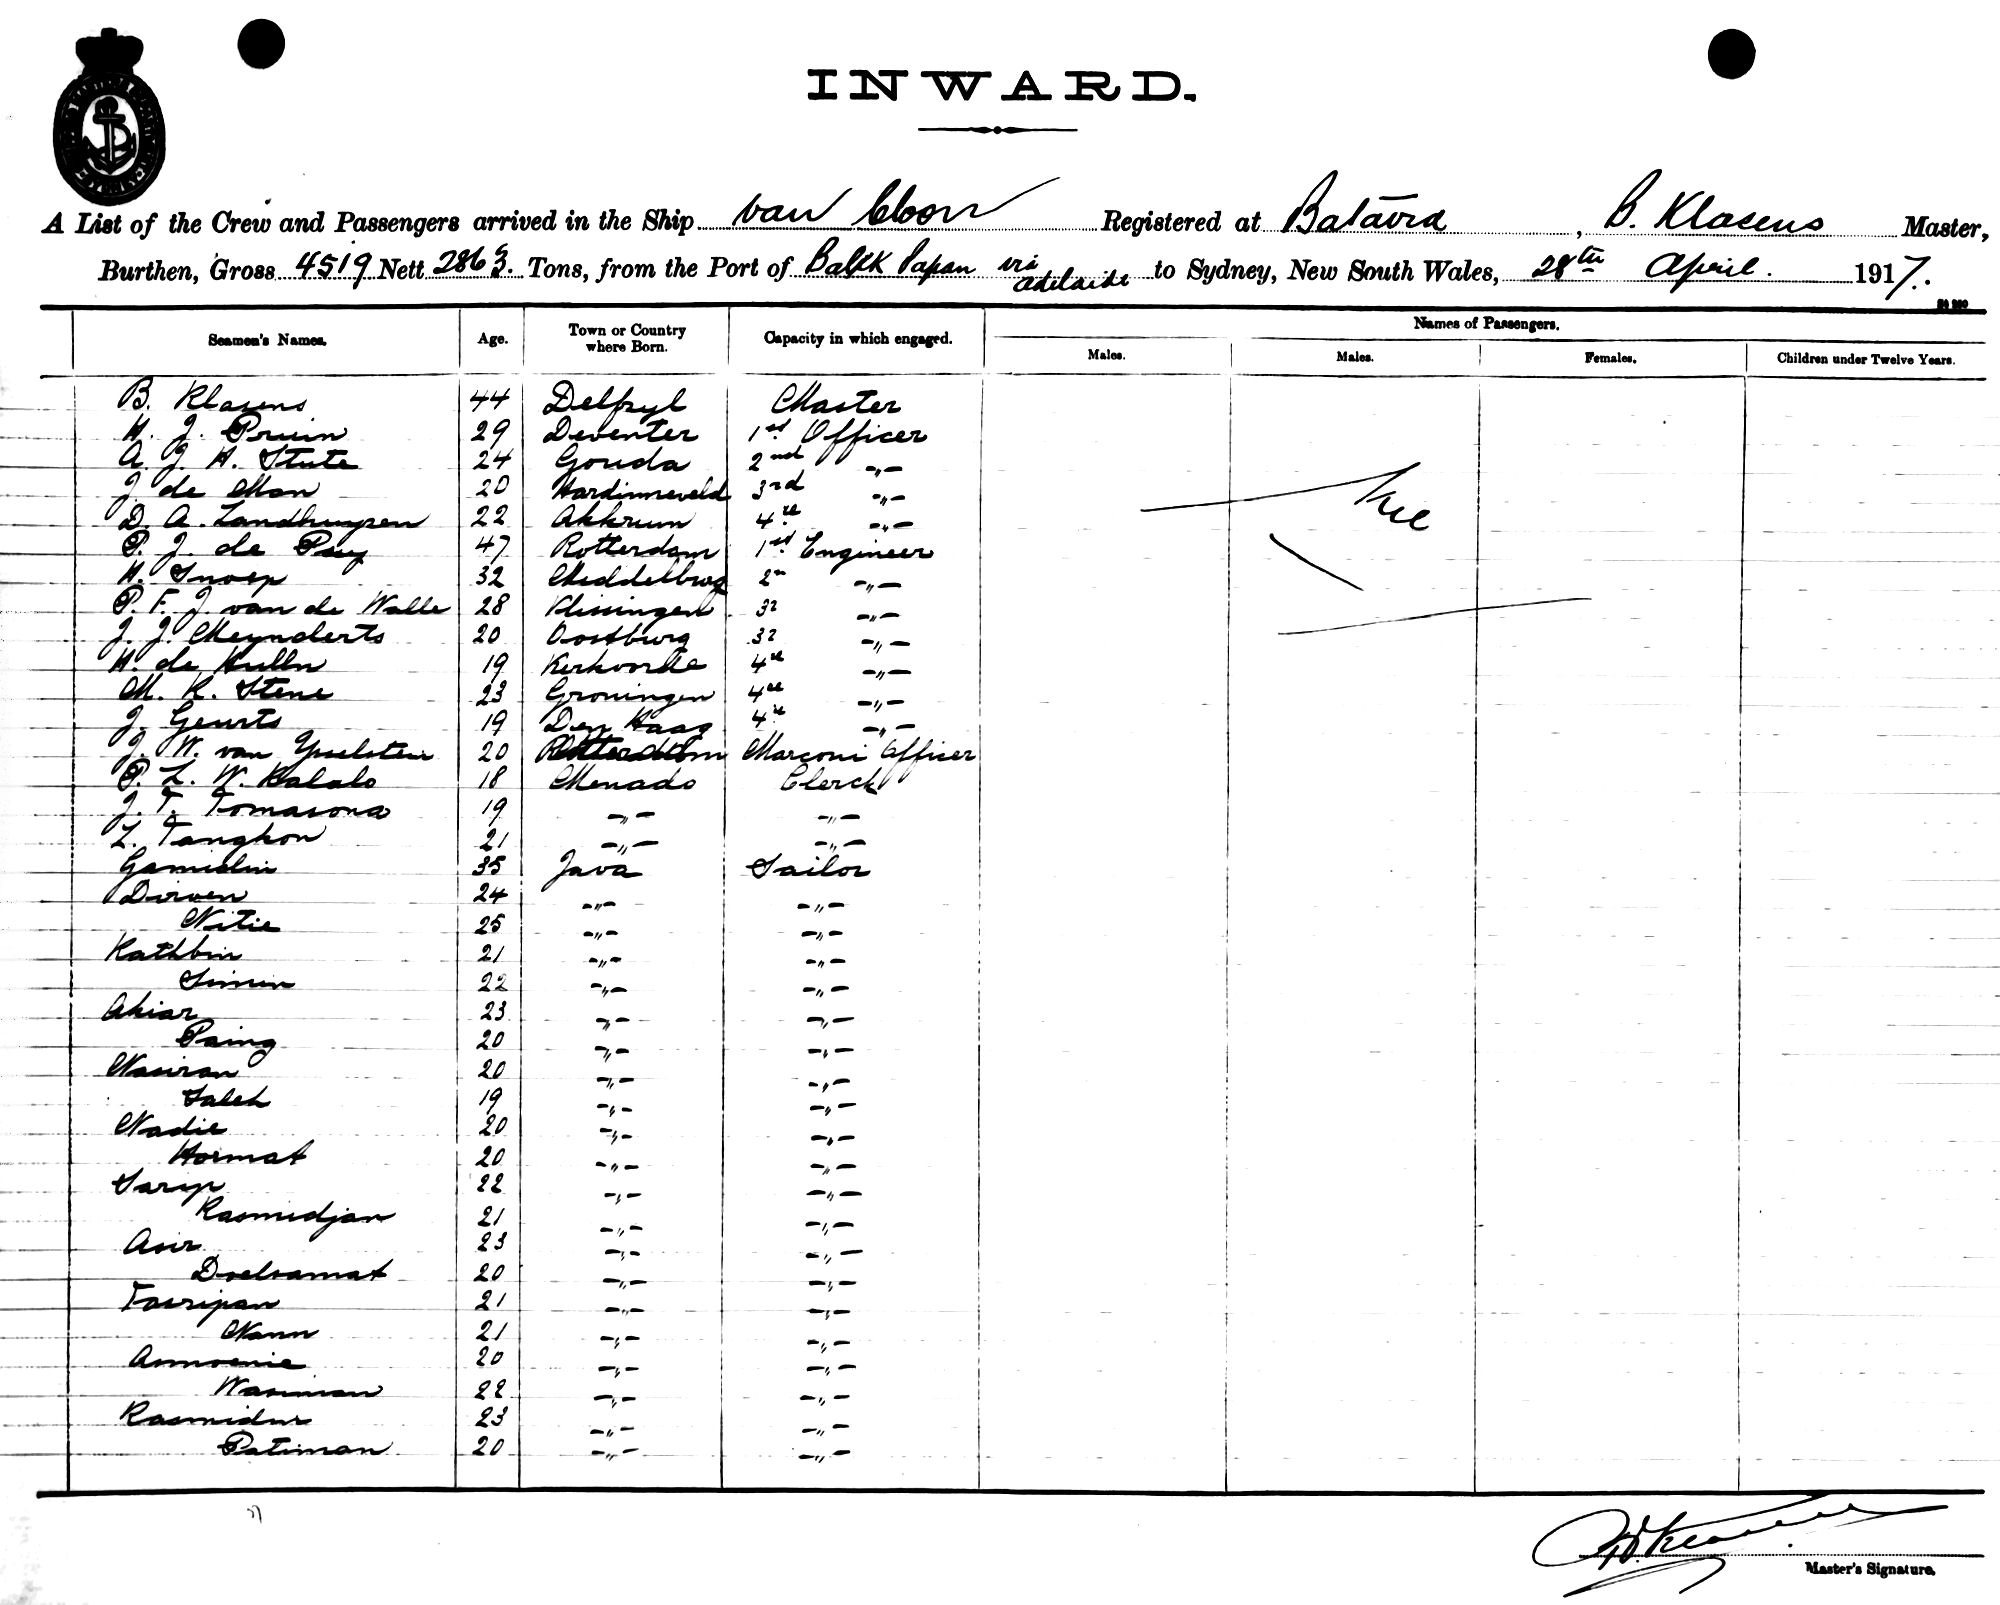 INWARD.
A List of the Crew and Passengers arrived in the Ship van Cloon Registered at Batavia, B. Klasens Master,
Burthen, Gross 4519 Nett 2863. Tons, from the Port of Balik Papan via Adelaide to Sydney, New South Wales, 28th April. 1917.
Seamen's Names. Age. Town or Country where Born. Capacity in which engaged. Names of Passengers.
Males. Males. Females. Children under Twelve Years.
B. Klasens 44 Delfzyl Master
H. J. Pruim 29 Deventer 1st Officer
A. J. H. Stute 24 Gouda 2nd -„-
J. de Man 20 Hardinxveld 3rd -„-
D. A. Landhuysen 22 Akkrum 4th -„-
P. J. de Puy 47 Rotterdam 1st Engineer
H. Snoep 32 Middelburg 2n -„-
P. F. J. van de Walle 28 Vlissingen 3r -„-
J. J. Meynderts 20 Oostburg 3r -„-
H. de Hulln 19 4th -„-
M. K. Stene 23 Groningen 4th -„-
J. Geurts 19 Den Haag 4th -„-
J. W. van Ysselstein 20 Rotterdam Marconi Officer
P. L. W. Kalalo 18 Menado Clerck
J. T. Tomasona 19 -„- -„-
L. Tangkon 21 -„- -„-
Gamidin 35 Java Sailor
Dirven 24 -„- -„-
Nitie 25 -„- -„-
Kathbin 21 -„- -„-
Simin 22 -„- -„-
Akiar 23 -„- -„-
Paing 20 -„- -„-
Nasiran 20 -„- -„-
Saleh 19 -„- -„-
Nadie 20 -„- -„-
Hormat 20 -„- -„-
Sarip 22 -„- -„-
Rasmidjan 21 -„- -„-
Asir 23 -„- -„-
Doelsamat 20 -„- -„-
Tasripan 21 -„- -„-
Nann 21 -„- -„-
Asmoenie 20 -„- -„-
Wasiman 22 -„- -„-
Kasmidur 23 -„- -„-
Patiman 20 -„- -„-
Master's Signature.